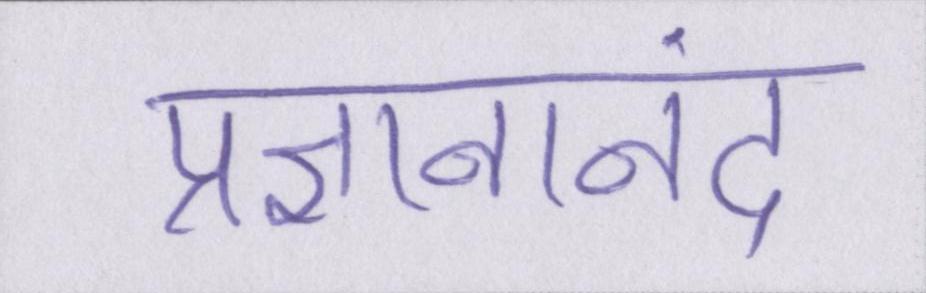 प्रज्ञानानंद